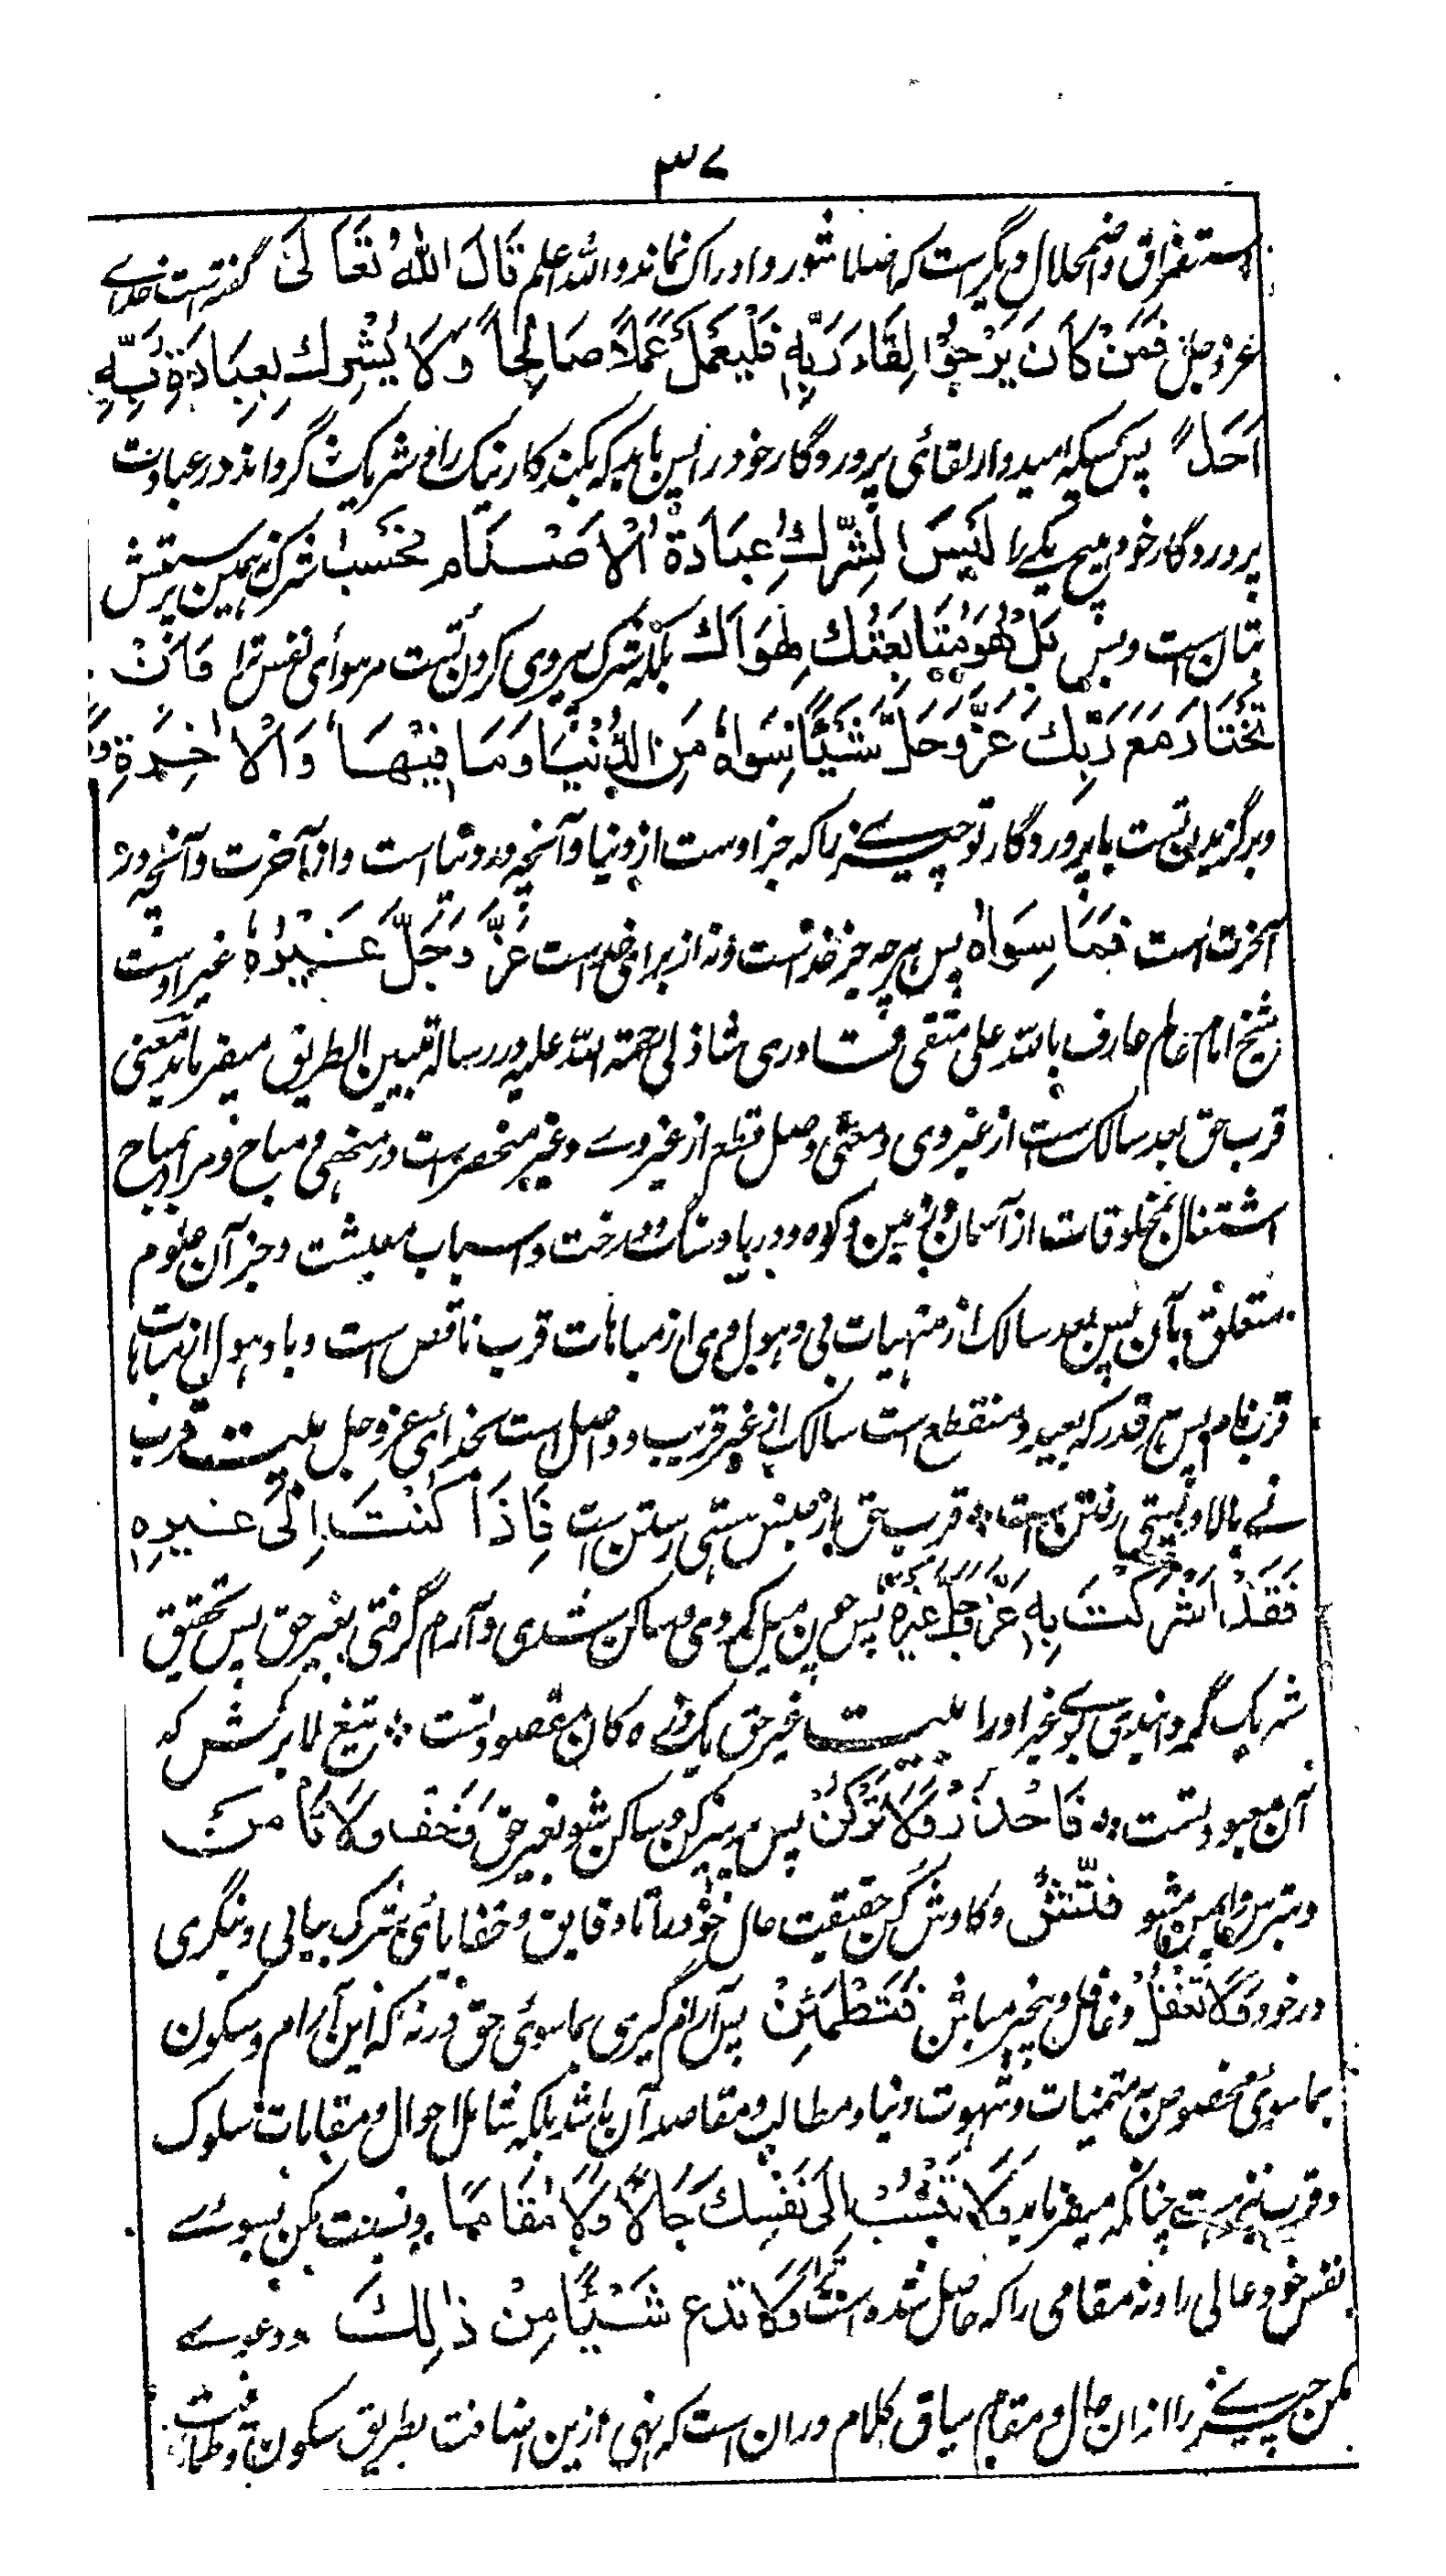 ۳۷
استغراق و اضمحلال دیگر است که اصلا شعور و ادراک نماند و الله اعلم قَالَ اللهُ تَعَالَىٰ گفته است خدای
عز و جل فَمَنْ كَانَ يَرْجُوْا لِقَاءَ رَبِّهٖ فَلْيَعْمَلْ عَمَلًا صَالِحًا وَلَا يُشْرِكْ بِعِبَادَةِ رَبِّهٖ
اَحَدًا پس کسیکه امیدوار لقائی پروردگار خود را پس باید که بکند کار نیک را و شریک نگرداند در عبادت
پروردگار خود هیچ یکے را لَيْسَ الشِّرْكُ عِبَادَةُ الْاَصْنَامِ فَحَسْبُ شرک نه همین پرستش
بتان است و بس بَلْ هُوَ مُتَابَعَتُكَ لِهَوَاكَ بلکه شرک پیروی کردن تست مر هوای نفس ترا وَاَنْ
تَخْتَارَ مَعَ رَبِّكَ عَزَّ وَجَلَّ شَيْئًا سِوَاهُ مِنَ الدُّنْيَا وَمَا فِيْهَا وَالْاٰخِرَةِ وَمَا
و برگزیدن تست با پروردگار تو چیزے را که جز اوست از دنیا و آنچه در دنیا است و از آخرت و آنچه در
آخرت است فَمَا سِوَاهُ پس هر چه جز خداست و نه از برای خداست عَزَّ وَجَلَّ غَيْرُهٗ غیر اوست
شیخ امام عالم عارف بالله علی متقی قادری شاذلی رحمة الله علیه در رساله تبیین الطریق میفرماید معنی
قرب حق بعد سالک ست از غیر وی و معنی وصل قطع از غیر وے و غیر منحصرست در منهی و مباح و مراد بمباح
اشتغال بمخلوقات از آسمان و زمین و کوه و دریا و سنگ و درخت و اسباب معیشت و جز آن علوم
متعلق بآن پس بعد سالک از منهیات بی ذهول وی از مباحات قرب ناقص است و با ذهول از مباحات
قرب تام پس هر قدر که بعید و منقطع است سالک از غیر قریب و واصل است بخدای عز و جل بیت قرب
نے بالا و پستی رفتن است ٭ قرب حق از حبس هستی رستن است فَاِذَا كُنْتَ اِلَىٰ غَيْرِهٖ
فَقَدْ اَشْرَكْتَ بِهٖ عَزَّ وَجَلَّ غَيْرَهٗ پس چون میل کردی و ساکن شدی و آرام گرفتی بغیر حق پس تحقیق
شریک گردانیدی بوے غیر او را بیت غیر حق یک ذره کان مقصود تست ٭ تیغ لا برکش که
آن معبود تست ٭ فَاحْذَرْ وَلَا تَرْكَنْ پس پرهیز کن و ساکن مشو بغیر حق وَخَفْ وَلَا تَاْمَنْ
و بترس و ایمن مشو فَفَتِّشْ و کاوش کن حقیقت حال خود را تا دقایق و خفایای شرک بیابی و بنگری
در خود وَلَا تَغْفُلْ و غافل و بیخبر مباش فَتَطْمَئِنْ پس آرام گیری بماسوی حق ورنه که این آرام و سکون
بماسوی مخصوص به متمنیات و شهوت دنیا و مطالب و مقاصد آن باشد بلکه شامل احوال و مقامات سلوک
و قرب نیز هست چنانکه میفرماید وَلَا تَنْسُبْ اِلَىٰ نَفْسِكَ حَالًا وَلَا مَقَامًا و نسبت مکن بسوے
نفس خود حالی را و نه مقامی را که حاصل شده است ترا وَلَا تَدَّعِ شَيْئًا مِنْ ذٰلِكَ و دعوے
مکن چیزے را از ان حال و مقام سیاق کلام در آن است که نهی ازین اضافت بطریق سکون و طمانیت